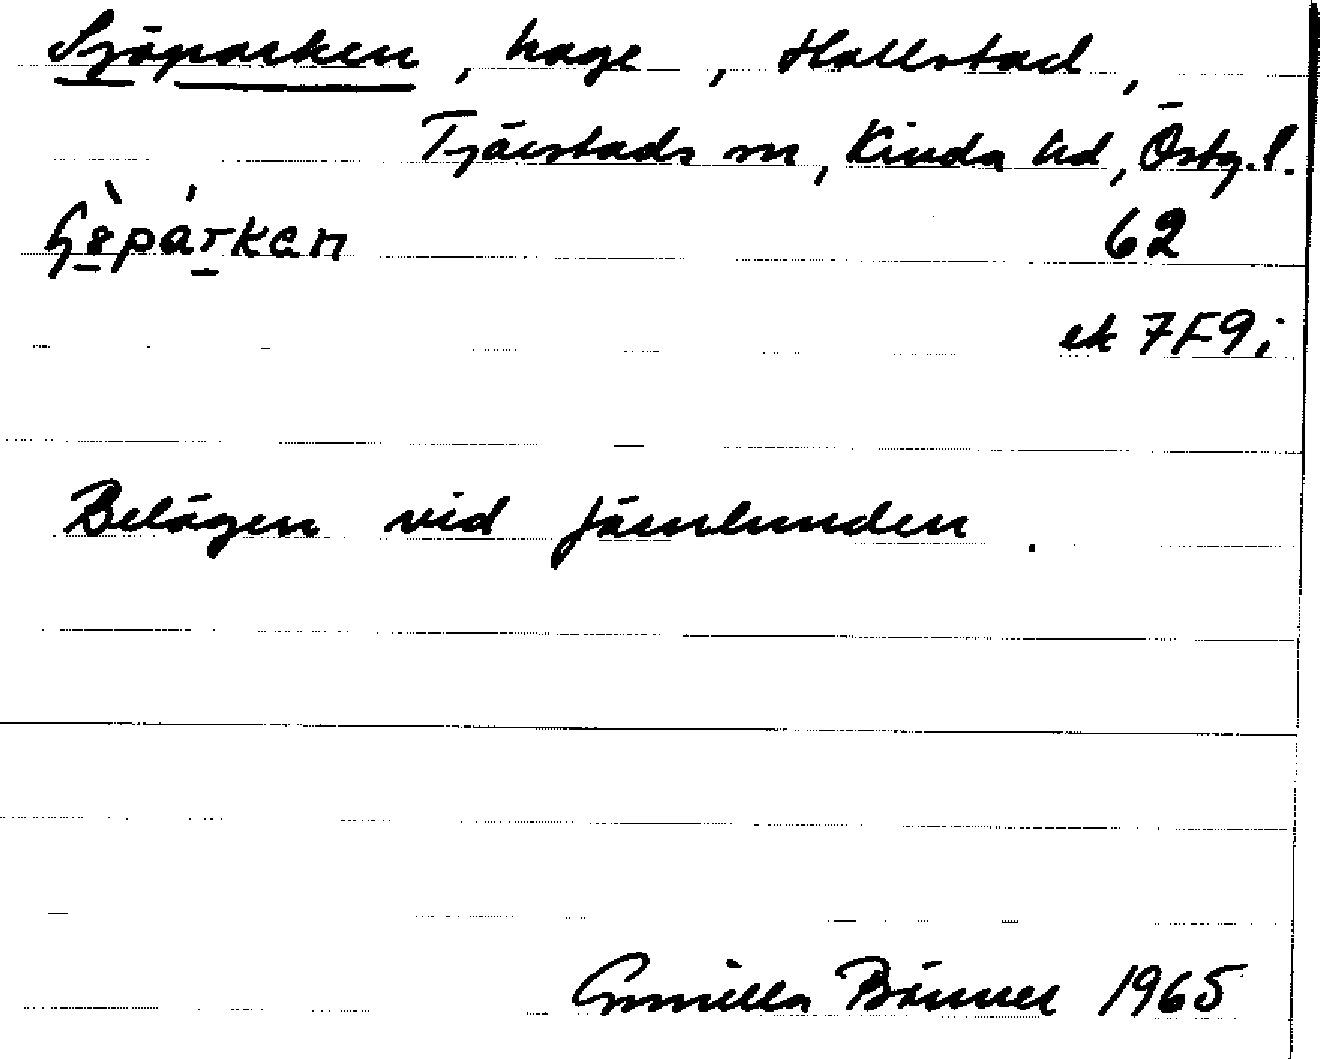 Sjöparken, hage, Hallstad,
Tjärstads sn, Kinda hd, Östg.l.
62
ek 7F9i
Belägen vid Järnlunden.
Gunilla 1965